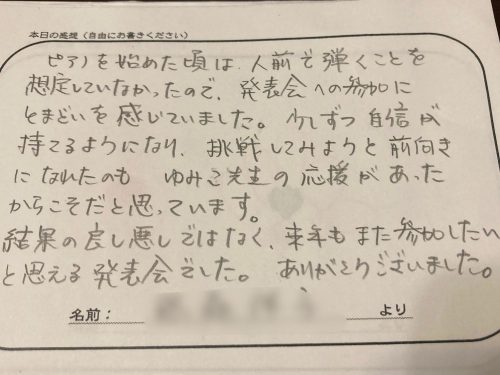 本日の感想（自由にお書きください）
ピアノを始めた頃は、人前で弾くことを
想定していなかったので、発表会への参加に
とまどいを感じていました。少しずつ自信が
持てるようになり、挑戦してみようと前向き
になれたのも ゆみこ先生の応援があった
からこそだと思っています。
結果の良し悪しではなく、来年もまた参加したい
と思える発表会でした。 ありがとうございました。
名前： より